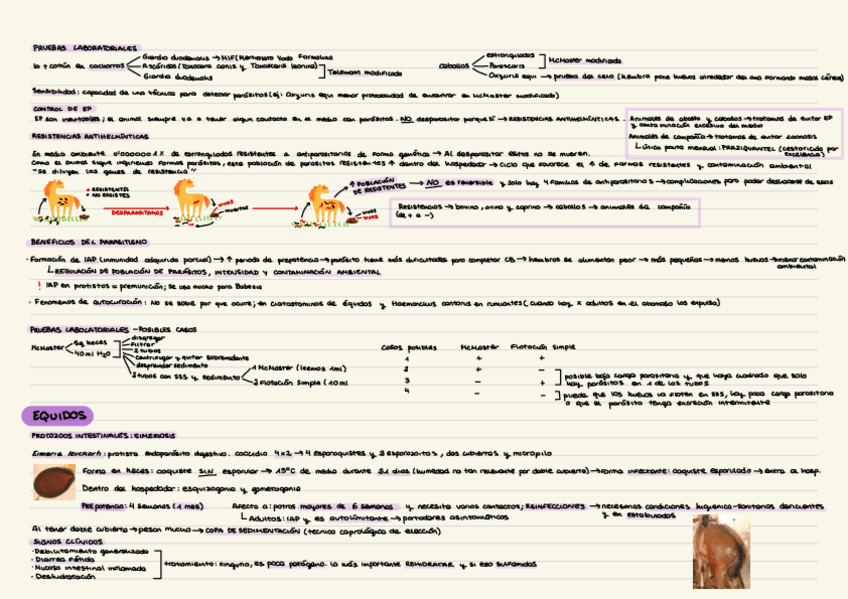 PRUEBAS LABORATORIALES
lo + común en cachorros
Giardia duodenalis → MIF (Merthiolato Yodo Formalina
Ascáridos (Toxocara canis y Toxascaris leonina)
Giardia duodenalis
Telemann modificado
caballos
estrongilados
Parascaris
McMaster modificado
Oxyuris equi → prueba del celo (hembra pone huevos alrededor del ano formando masas céreas)
Sensibilidad: capacidad de una técnica para detectar parásitos (ej: Oxyuris equi menor probabilidad de encontrar en McMaster modificado)
CONTROL DE EP
EP son inevitables; el animal siempre va a tener algun contacto en el medio con parásitos. NO desparasitar porque sí → RESISTENCIAS ANTIHELMÍNTICAS.
Animales de abasto y caballos → tratamos de evitar EP y contaminación excesiva del medio
Animales de compañía → tratamos de evitar zoonosis
única pauta mensual: PRAZIQUANTEL (cestoricida por excelencia)
RESISTENCIAS ANTIHELMÍNTICAS
En medio ambiente 0'000001% de estrongilados resistentes a antiparasitarios de forma genética → Al desparasitar estos no se mueren.
Como el animal sigue ingiriendo formas parásitas, esta población de parásitos resistentes ↑ dentro del hospedador → ciclo que favorece el ↑ de formas resistentes y contaminación ambiental
"Se diluyen los genes de resistencia"
RESISTENTES
NO RESISTES
DESPARASITAMOS
vivos
muertos
↑ POBLACIÓN DE RESISTENTES → NO es reversible y solo hay 4 familias de antiparasitarios → complicaciones para poder deshacerse de esas
Resistencias → bovino, ovino y caprino → caballos → animales de compañía
(de + a -)
BENEFICIOS DEL PARASITISMO
· Formación de IAP (inmunidad adquirida parcial) → ↑ periodo de prepatencia → parásito tiene más dificultades para completar CB → hembras se alimentan peor → más pequeñas → menos huevos → menor contaminación ambiental
REGULACIÓN DE POBLACIÓN DE PARÁSITOS, INTENSIDAD Y CONTAMINACIÓN AMBIENTAL
! IAP en protistas = premunición; se usa mucho para Babesia
· Fenómenos de autocuración: No se sabe por que ocurre; en Ciatostominos de Équidos y Haemonchus contortus en rumiantes (cuando hay x adultos en el abomaso los expulsa)
PRUEBAS LABOLATORIALES - POSIBLES CASOS
McMaster
5g heces
40 ml H2O
disgregar
filtrar
2 tubos
centrifugar y quitar sobrenadante
desprender sedimento
2 tubos con SSS y sedimento
1 McMaster (leemos 1ml)
2 Flotación Simple (10 ml
Casos posibles McMaster Flotación simple
1 + +
2 + -
3 - +
4 - -
posible baja carga parasitaria y, que haya cuadrado que solo hay parásitos en 1 de los tubos
puede que los huevos no floten en SSS, hay poca carga parasitaria o que el parásito tenga excreción intermitente
EQUIDOS
PROTOZOOS INTESTINALES: EIMERIOSIS
Eimeria leuckarti: protista endoparásito digestivo. coccidio 4x2 → 4 esporoquistes y 2 esporozoitos, dos cubiertas y micropilo
Forma en heces: ooquiste SIN esporular → 15ºC de medio durante 21 días (humedad no tan relevante por doble cubierta) → forma infectante: ooquiste esporulado → entra al hosp.
Dentro del hospedador: esquizogonia y gametogonia
Prepatencia: 4 semanas (1 mes)
Afecta a: potros mayores de 6 semanas y necesita varios contactos; REINFECCIONES → necesarias condiciones higiénico-sanitarias deficientes y en estabulados
Adultos: IAP y es autolimitante → portadores asintomáticos
Al tener doble cubierta → pesan mucho → COPA DE SEDIMENTACIÓN (técnica coprológica de elección)
SIGNOS CLÍNICOS
· Debilitamiento generalizado
· Diarrea fétida
· Mucosa intestinal inflamada
· Deshidratación
tratamiento: ninguno, es poco patógeno. lo más importante REHIDRATAR y si eso sulfamidas